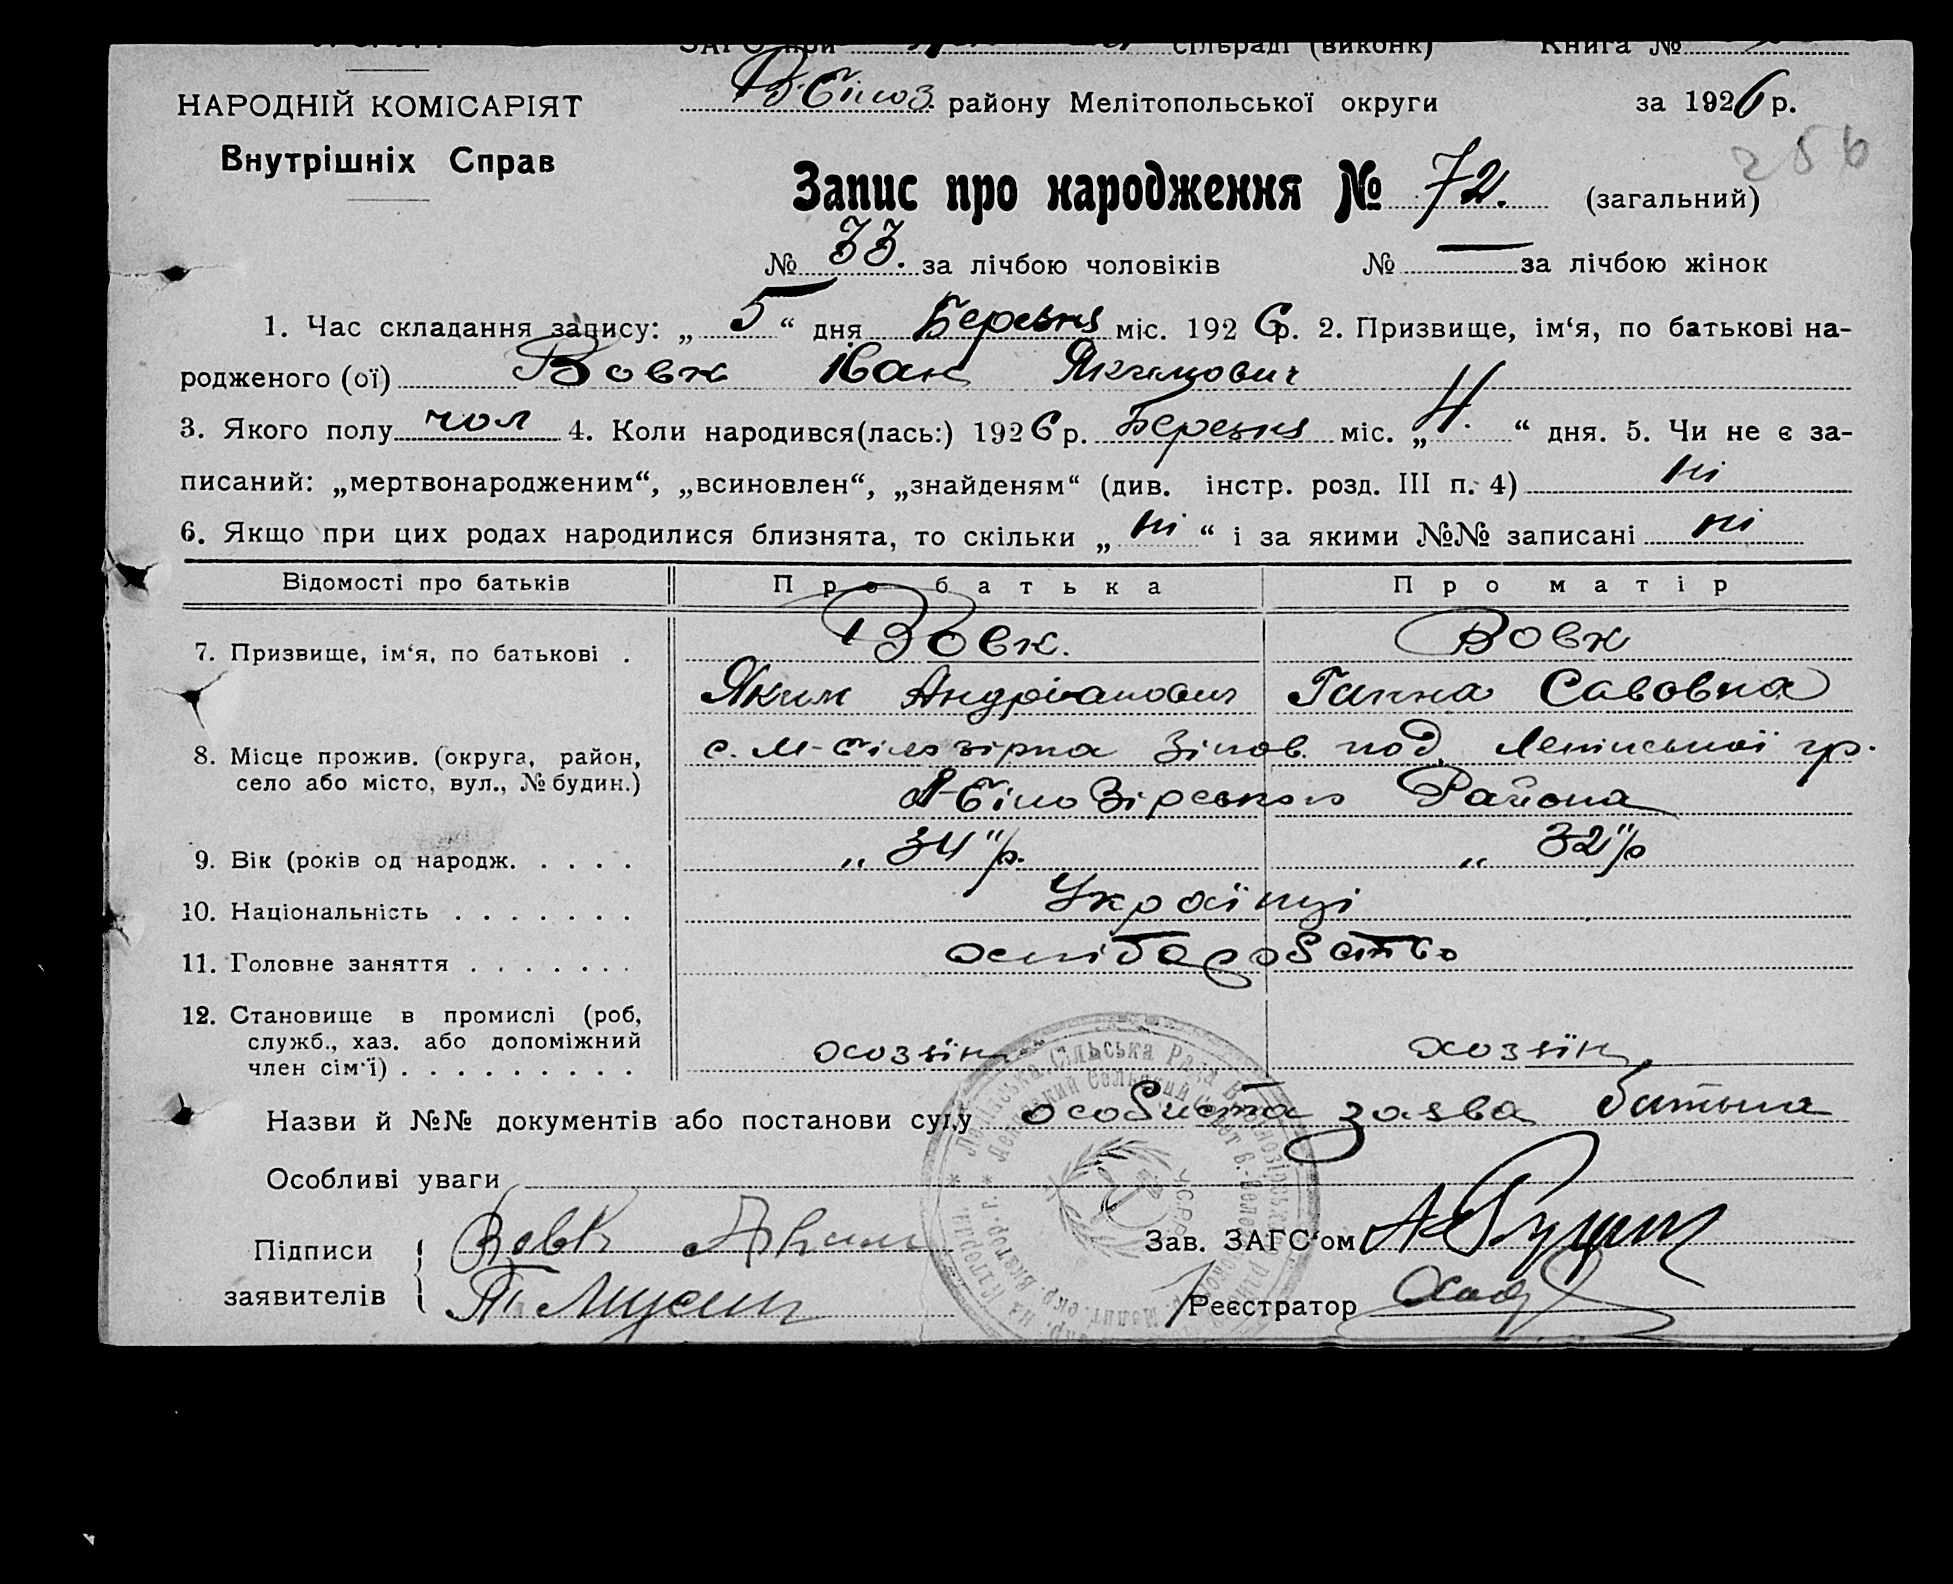 ЗАГС при сільраді (виконк) Книга №
В-Білоз. району Мелітопольської округи за 1926 р.
НАРОДНІЙ КОМІСАРІЯТ
Внутрішніх Справ
256
Запис про народження № 72. (загальний)
№ 33. за лічбою чоловіків № — за лічбою жінок
1. Час складання запису: „ 5 “ дня Березня міс. 1926 р. 2. Призвище, ім‘я, по батькові на-
родженого (ої) Вовк Іван Якимович
3. Якого полу чол 4. Коли народився(лась:) 1926 р. Березня міс. „ 4. “ дня. 5. Чи не є за-
писаний: „мертвонародженим“, „всиновлен“, „знайденям“ (див. інстр. розд. III п. 4) ні
6. Якщо при цих родах народилися близнята, то скільки „ ні “ і за якими №№ записані ні
Відомості про батьків Про батька Про матір
7. Призвище, ім‘я, по батькові . Вовк. Вовк
Яким Андріанович Ганна Савовна
8. Місце прожив. (округа, район, с. М-Білозірка под Ленінської гр.
село або місто, вул., № будин.) Білозірського Района
9. Вік (років од народж. . . . . „ 34 "/р. „ 32 "/р
10. Національність . . . . . . . Українці
11. Головне заняття . . . . . . .
12. Становище в промислі (роб,
служб., хаз. або допоміжний хозяїн хозяїн
член сім‘ї) . . . . . . . . . .
Назви й №№ документів або постанови суду особиста заява батька
Особливі уваги
Підписи Вовк Яким Зав. ЗАГС‘ом
заявителів Реєстратор
Ленінська Сільська Рада